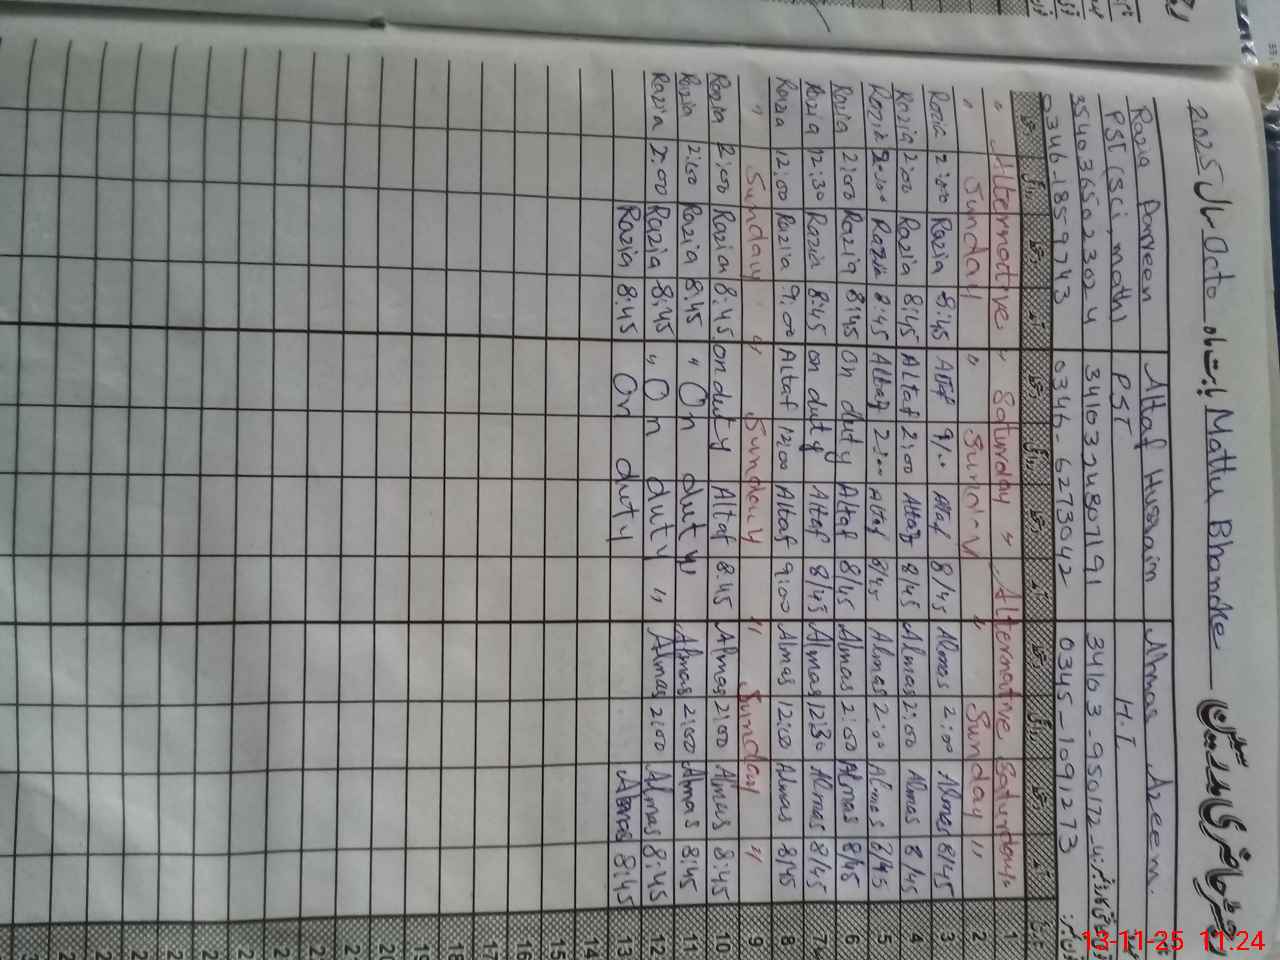 رجسٹر حاضری مدرسین Mathu Bhandke بابت ماہ Octo سال 2025
Razia Parveen Altaf Hussain Almas Azeem.
PST (Sci, math) PST H.T
3540365023024 3410324807191 34103-950172-4
0346-1859743 0346-6273042 0345-1091273
" Alternative " Saturday " Alternative Saturday " 1
" Sunday " Sunday " Sunday " 2
Razia 2:00 Razia 8:45 Altaf 9/00 Altaf 8/45 Almas 2:00 Almas 8/45 3
Razia 2:00 Razia 8:45 Altaf 2:00 Altaf 8/45 Almas 2:00 Almas 8/45 4
Razia 2:00 Razia 8:45 Altaf 2:00 Altaf 8/45 Almas 2:00 Almas 8/45 5
Razia 2:00 Razia 8:45 On duty Altaf 8/45 Almas 2:00 Almas 8/45 6
Razia 12:30 Razia 8:45 on duty Altaf 8/45 Almas 12:30 Almas 8/45 7
Razia 12:00 Razia 9:00 Altaf 12:00 Altaf 9:00 Almas 12:00 Almas 8/45 8
" Sunday " Sunday " Sunday " 9
Razia 2:00 Razia 8:45 on duty Altaf 8:45 Almas 2:00 Almas 8:45 10
Razia 2:00 Razia 8:45 " On duty " Almas 2:00 Almas 8:45 11
Razia 2:00 Razia 8:45 " On duty " Almas 2:00 Almas 8:45 12
Razia 8:45 On duty Almas 8:45 13
14
15
16
17
18
19
13-11-25 11:24